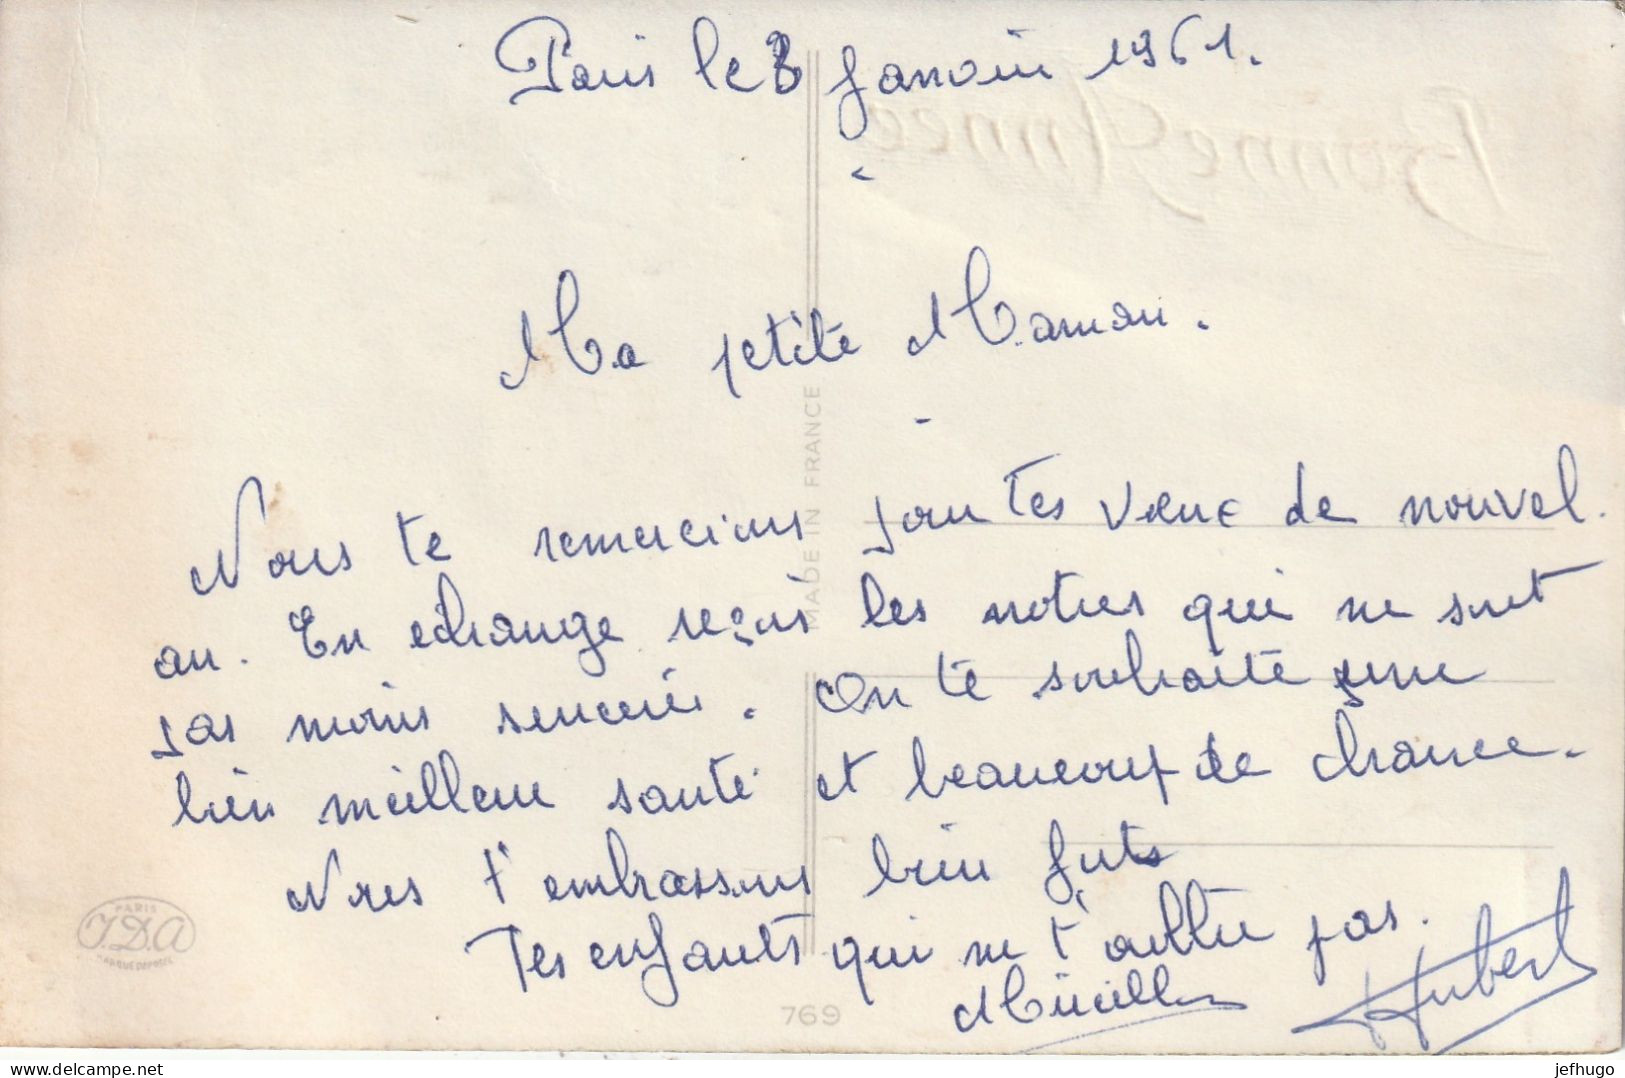 Paris le 3 Janvier 1961.
Bonne Année
Ma petite Maman.
Nous te remercions pour tes vœux de nouvel
an. En echange reçois les notres qui ne sont
pas moins sincères. On te souhaite une
bien meilleure santé et beaucoup de chance.
Nous t'embrassons bien forts
Tes enfants qui ne t'oublie pas.
Mireille Hubert
MADE IN FRANCE
PARIS
J.D.A
MARQUE DÉPOSÉE
769
delcampe.net
jefhugo